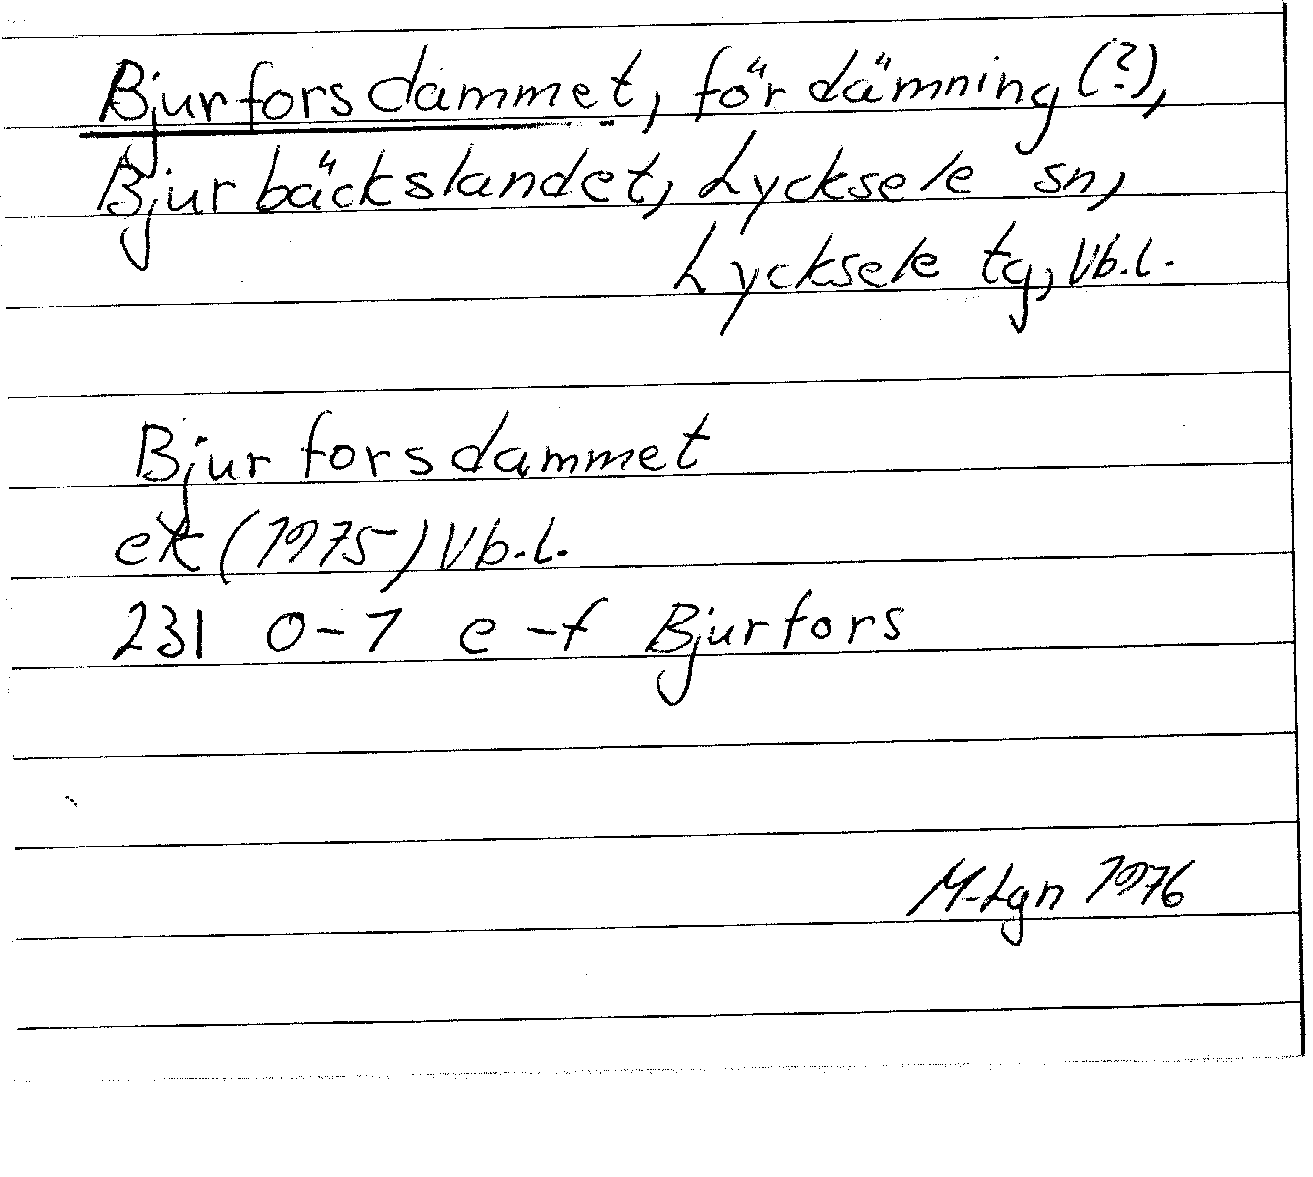 Bjurforsdammet, för dämning (?),
Bjurbäckslandet, Lycksele sn,
Lycksele tg, Vb.l.
Bjurforsdammet
ek (1975) Vb.l.
231 0-1 e-f Bjurfors
M-Lgn 1976